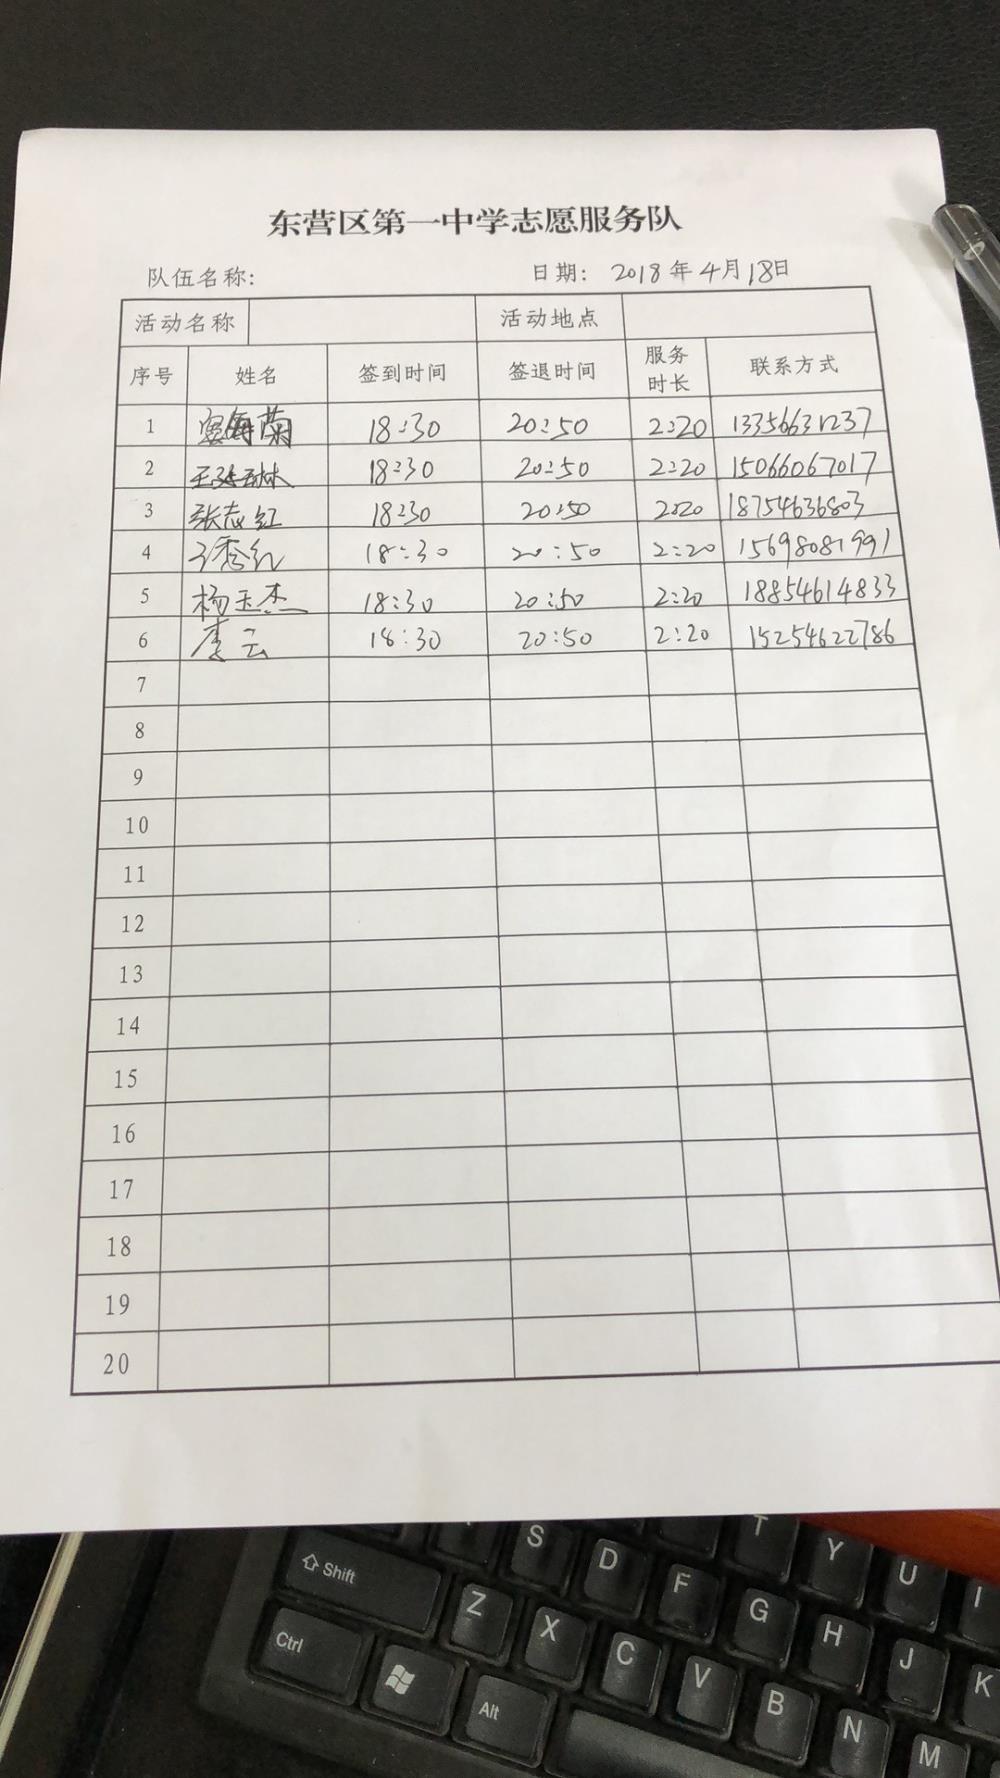 东营区第一中学志愿服务队
队伍名称: 日期: 2018年4月18日
活动名称 活动地点
序号 姓名 签到时间 签退时间 服务时长 联系方式
1 海菊 18:30 20:50 2:20 13356631237
2 18:30 20:50 2:20 15066067017
3 张志红 18:30 20:50 2:20 18754636803
4 18:30 20:50 2:20 15698081991
5 杨玉杰 18:30 20:50 2:20 18854614833
6 李云 18:30 20:50 2:20 15254622786
7
8
9
10
11
12
13
14
15
16
17
18
19
20
S D F G H J K
T Y U I
Shift Z X C V B N M
Ctrl Alt